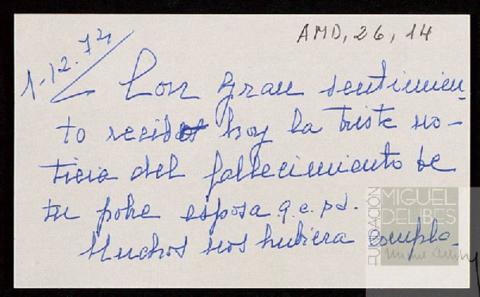 AMD, 26, 14
1-12-74
Con gran sentimien-
to recibo hoy la triste no-
ticia del fallecimiento de
tu pobre esposa q.e.p.d.
Muchos nos hubiera compla-
FUNDACIÓN
MIGUEL
DELIBES